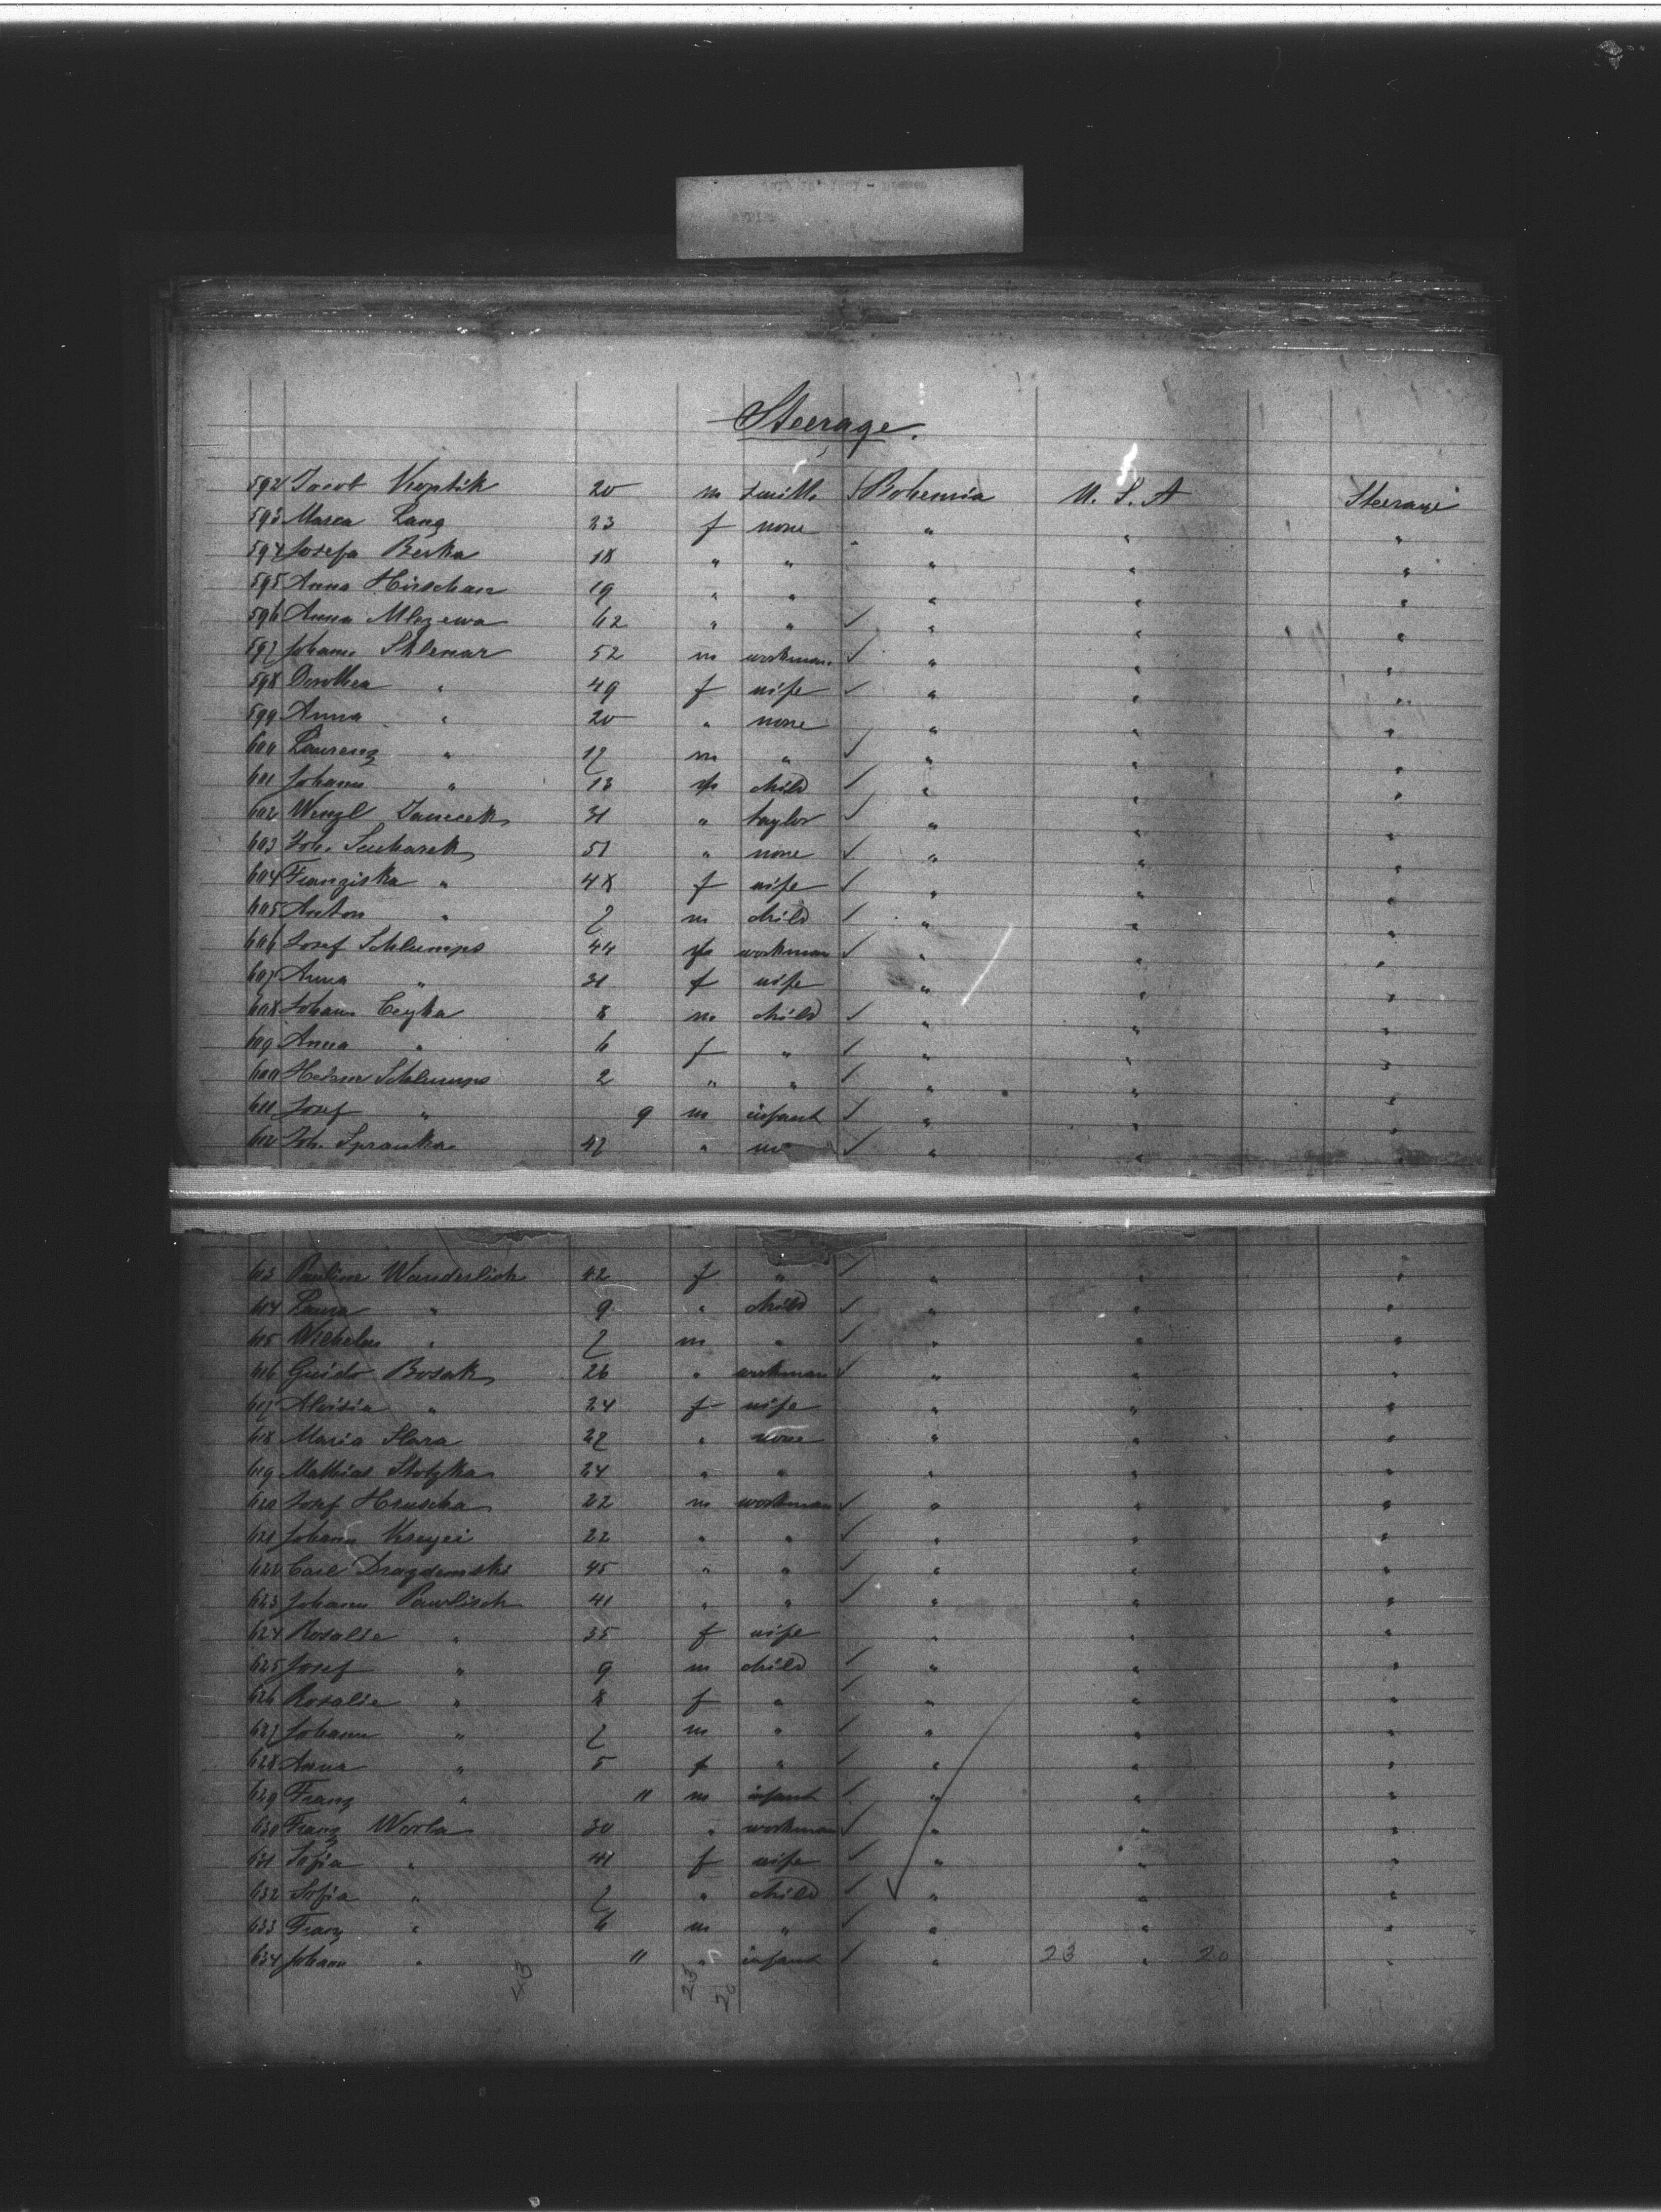 Steerage.
592 Jacob Koptik 20 m smith Bohemia U. S. A Steerage
593 Maria Lang 23 f none " " "
594 Josefa Berka 18 " " " " "
595 Anna 19 " " " " "
596 Anna 62 " " ✓ " " "
597 Johann Sklenar 52 m workman ✓ " " "
598 Dorothea " 49 f wife ✓ " " "
599 Anna " 20 " none " " "
600 Laurenz " 17 m " ✓ " " "
601 Johann " 13 m child ✓ " " "
602 Wenzl Janecek 31 " taylor ✓ " " "
603 Joh. Sucharek 51 " none ✓ " " "
604 Franziska " 48 f wife ✓ " " "
605 Anton " 7 m child ✓ " " "
606 Josef Schlumps 44 m workman ✓ " " "
607 Anna " 31 f wife " " "
608 Johann Ceyka 8 m child ✓ " " "
609 Anna " 6 f " ✓ " " "
600 Schlumps 2 " " ✓ " " "
611 Josef " 9 m infant ✓ " " "
612 Joh. Spranka 47 " ✓ " " "
613 Pauline Wunderlich 42 f " ✓ " " "
614 Laura " 9 " child ✓ " " "
615 Wilhelm " 7 m " ✓ " " "
616 Guido Bosak 26 " workman ✓ " " "
617 Aloisia " 24 f wife " " "
618 Maria Slara 27 " none " " "
619 Mathias Slotzka 24 " " " " "
620 Josef Hruscha 22 m workman ✓ " " "
621 Johann Kreyci 22 " " ✓ " " "
622 Carl 45 " " ✓ " " "
623 Johann Pawlisch 41 " " ✓ " " "
624 Rosalie " 35 f wife " " "
625 Josef " 9 m child ✓ " " "
626 Rosalie " 8 f " ✓ " " "
627 Johann " 7 m " ✓ " " "
628 Anna " 5 f " ✓ " " "
629 Franz " 11 m infant ✓ " " "
630 Franz Worla 30 " workman ✓ " " "
631 Sofia " 41 f wife ✓ " " "
632 Sofia " 7 " child ✓ " " "
633 Franz " 6 m " ✓ " " "
634 Johann " 11 " infant ✓ " 23 " 20 "
43 23 20